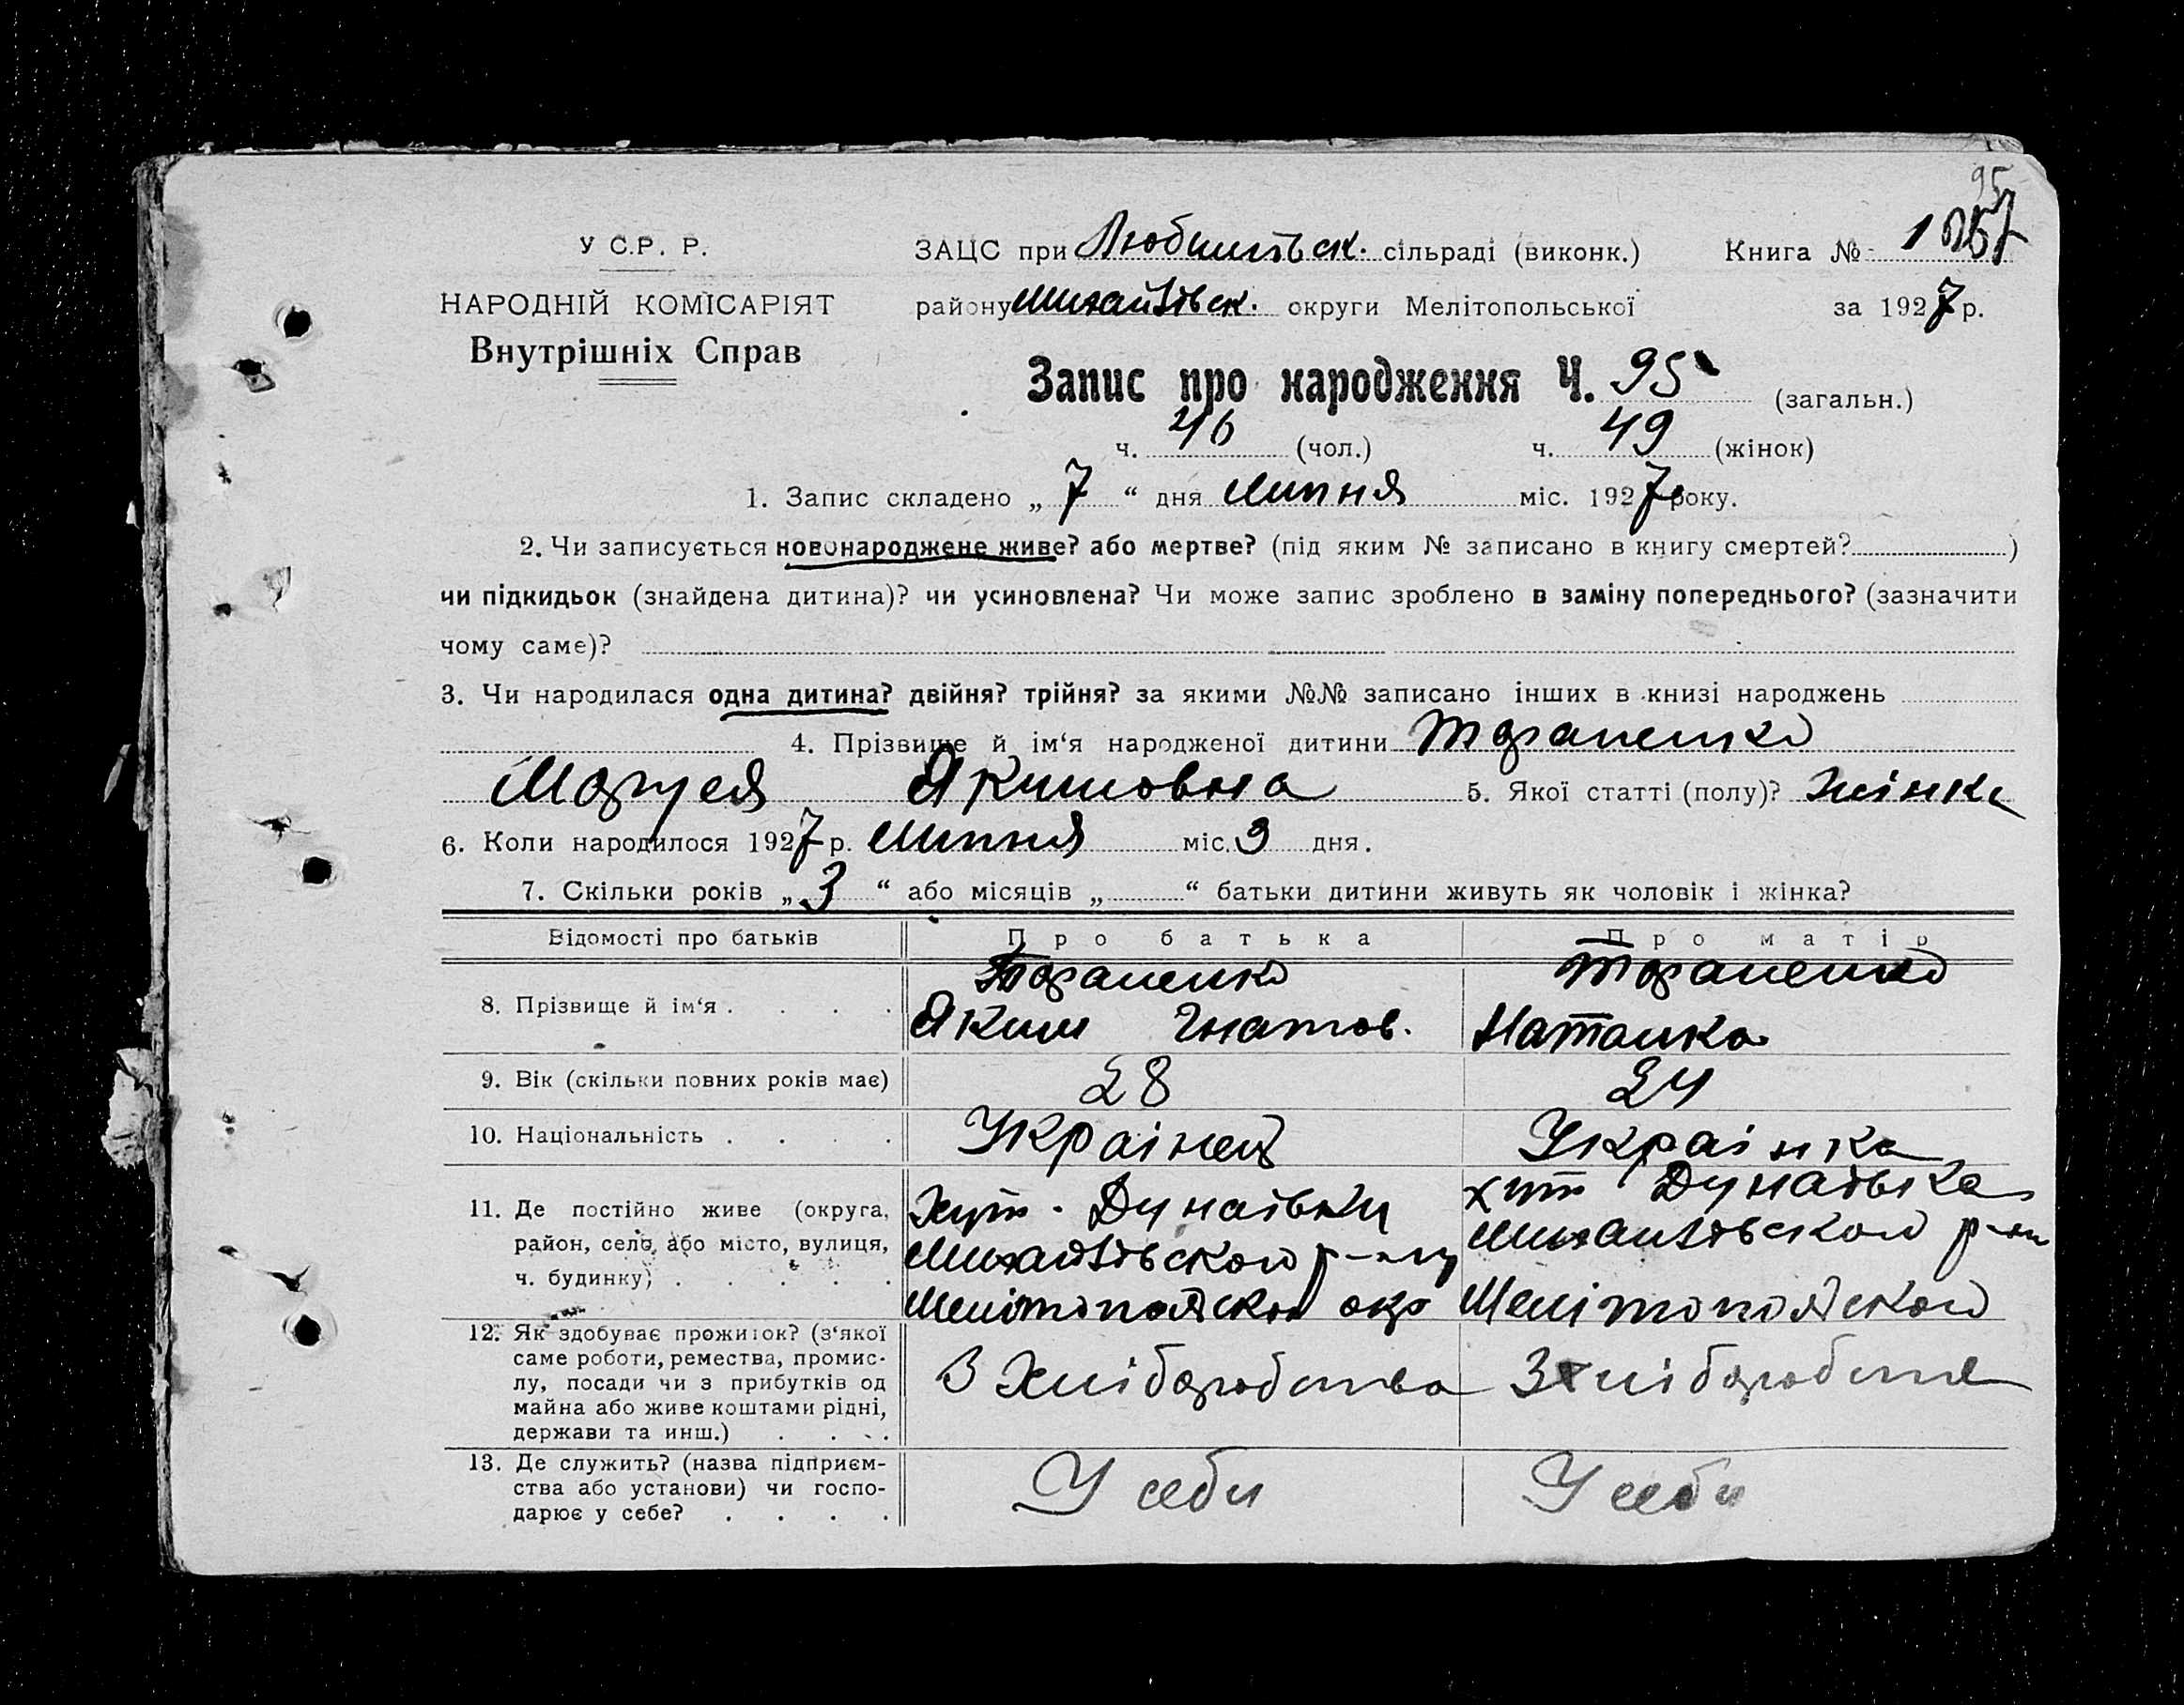 95
У С.Р. Р.
ЗАЦС при Любимівск. сільраді (виконк.) Книга №
НАРОДНІЙ КОМІСАРІЯТ
району Михайлівск. округи Мелітопольської за 1927 р.
Внутрішніх Справ
Запис про народження Ч. 95 (загальн.)
ч. 46 (чол.) ч. 49 (жінок)
1. Запис складено „ 7 “ дня Липня міс. 1927 року.
2. Чи записується новонароджене живе? або мертве? (під яким № записано в книгу смертей? )
чи підкидьок (знайдена дитина)? чи усиновлена? Чи може запис зроблено в заміну попереднього? (зазначити
чому саме)?
3. Чи народилася одна дитина? двійня? трійня? за якими №№ записано інших в книзі народжень
4. Прізвище й ім‘я народженої дитини Тараненко
Маруся Якимовна 5. Якої статті (полу)? Жінка
6. Коли народилося 1927 р. Липня міс. 3 дня.
7. Скільки років „ 3 “ або місяців „ “ батьки дитини живуть як чоловік і жінка?
Відомості про батьків Про батька Про матір
8. Прізвище й ім‘я . . . . Тараненко Яким Гнатов. Тараненко Наталка
9. Вік (скільки повних років має) 28 24
10. Національність . . . . Украінец Украінка
11. Де постійно живе (округа, Хут. Дунаівки хут Дунаівка
район, село, або місто, вулиця, Михайлівского р-ну Михайлівского р-ну
ч. будинку) . . . . . Мелітополской окр Мелітополского
12. Як здобуває прожиток? (з‘якої
саме роботи, ремества, промис-
лу, посади чи з прибутків од З Хліборобства З хліборобства
майна або живе коштами рідні,
держави та инш.) . . . .
13. Де служить? (назва підприєм-
ства або установи) чи госпо- У себи У себи
дарює у себе? . . . .